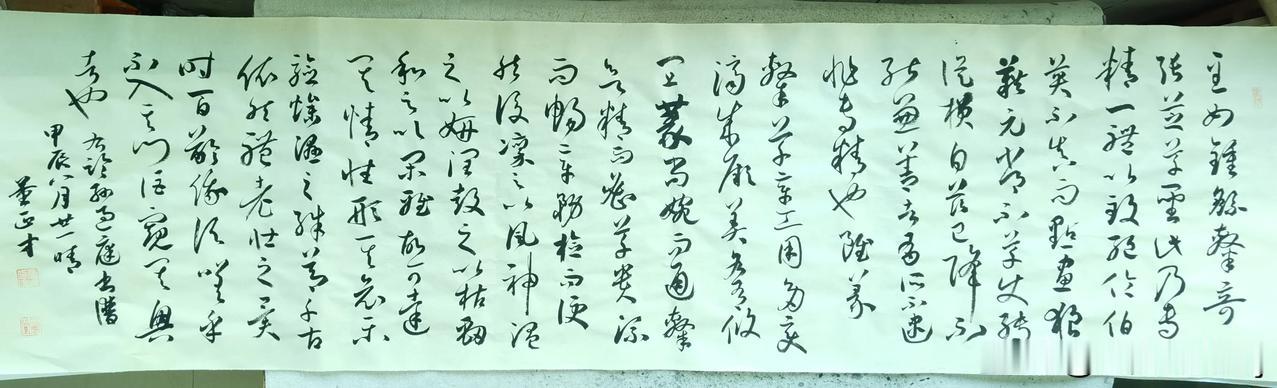 至如鍾繇隸奇
張芝草聖此乃專
精一體以致絕倫伯
英不真而點畫狼
藉元常不草使轉
從橫自茲已降不
能兼善者有所不逮
非專精也雖篆
隸草章工用多變
濟成厥美各有攸
宜篆尚婉而通隸
欲精而密草貴流
而暢章務檢而便
然後凜之以風神溫
之以妍潤鼓之以枯勁
和之以閑雅故可達
其情性形其哀樂
驗燥濕之殊節千古
依然體老壯之異
時百齡俄頃嗟乎
不入其門詎窺其奧
者也
右臨孫過庭書譜
甲辰八月廿一晴
董正才